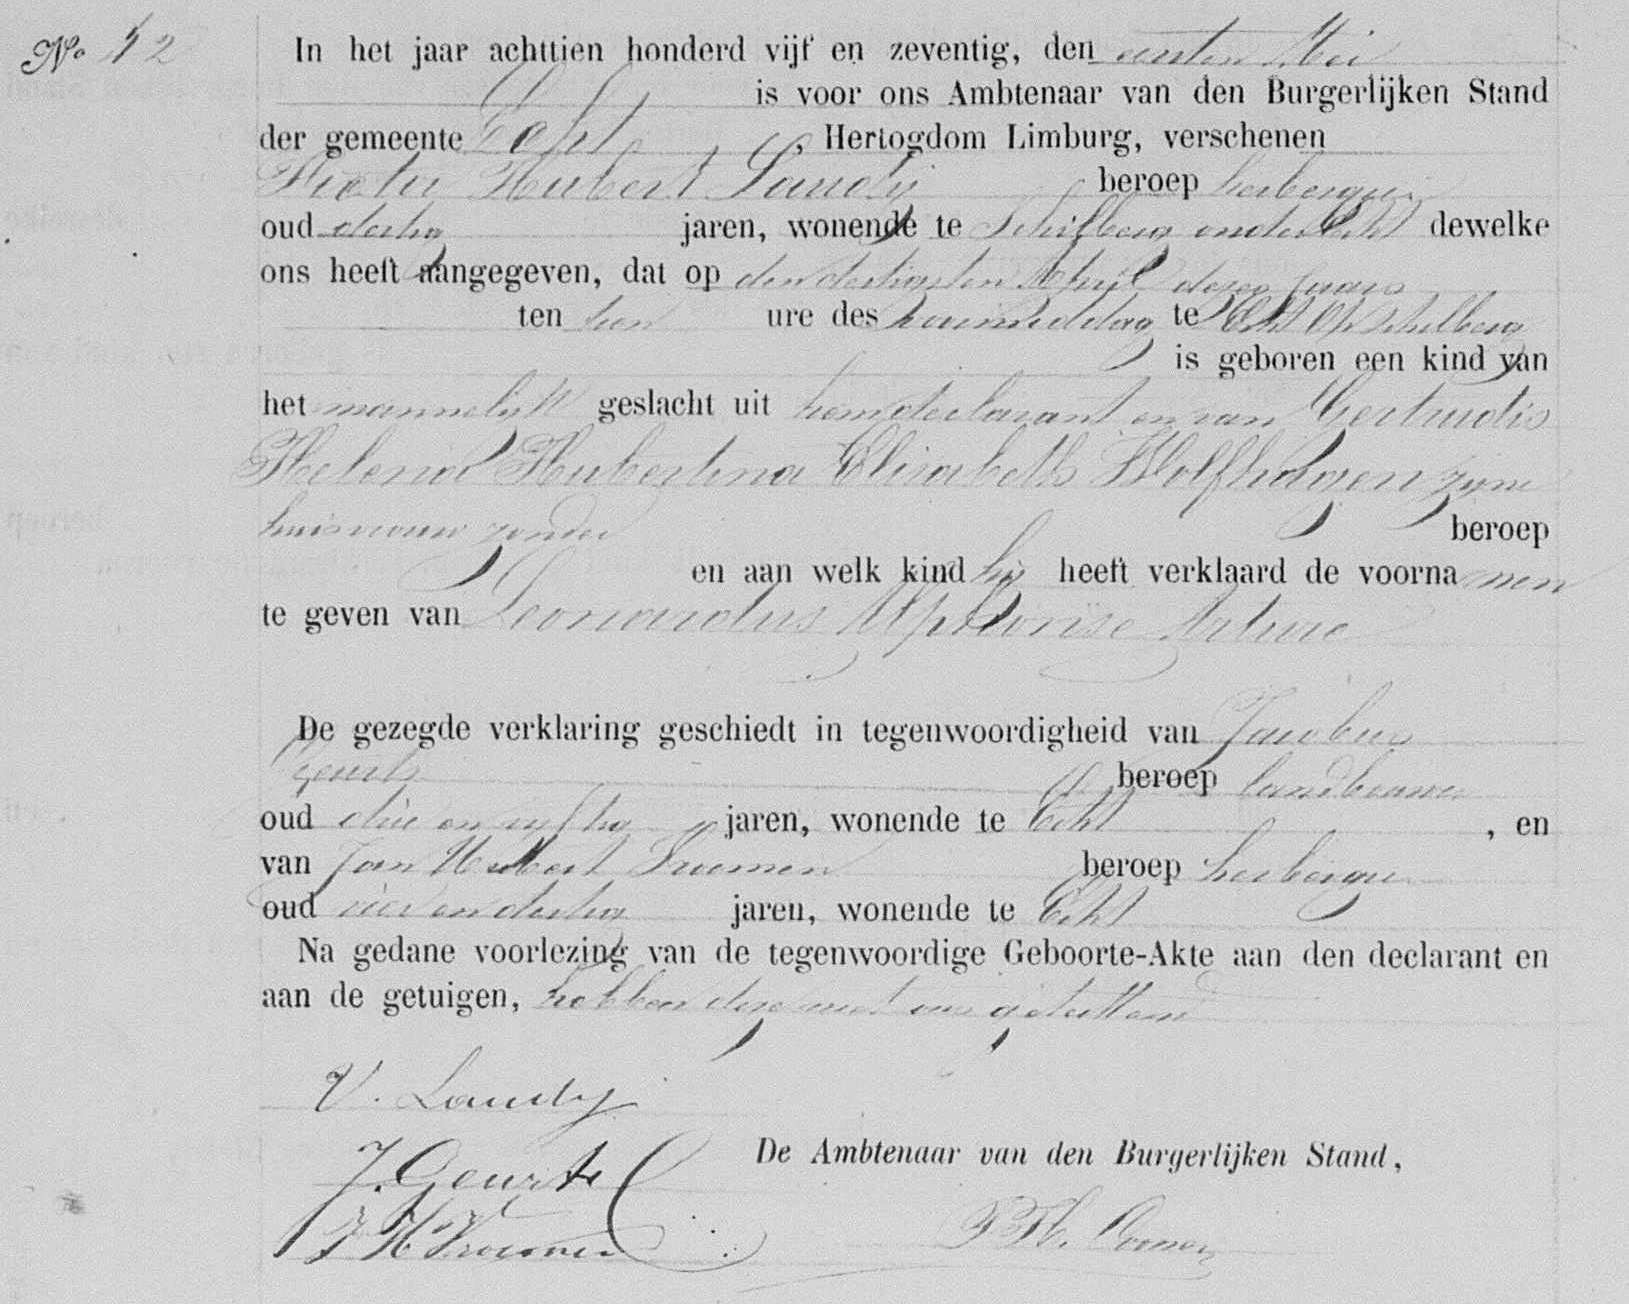 No 42
In het jaar achttien honderd vijf en zeventig, den eersten Mei
is voor ons Ambtenaar van den Burgerlijken Stand
der gemeente Echt, Hertogdom Limburg, verschenen
Hubert Landij beroep herbergier
oud dertig jaren, wonende te Schilberg onder Echt dewelke
ons heeft aangegeven, dat op den dertigsten April dezes jaars
ten tien ure des voormiddag te Echt op Schilberg
is geboren een kind van
het mannelijk geslacht uit hem declarant en van Gertrudis
Helena Hubertina Elisabeth Wolfhagen zijne
huisvrouw zonder beroep
en aan welk kind hij heeft verklaard de voornamen
te geven van Leonardus Alphonse Arture
De gezegde verklaring geschiedt in tegenwoordigheid van Jacobus
Geurts beroep landbouwer
oud drie en vijftig jaren, wonende te Echt, en
van Jan Hubert beroep herbergier
oud vier en dertig jaren, wonende te Echt
Na gedane voorlezing van de tegenwoordige Geboorte-Akte aan den declarant en
aan de getuigen, hebben deze met ons geteekend
V. Landij
J. Geurts
De Ambtenaar van den Burgerlijken Stand,
J H